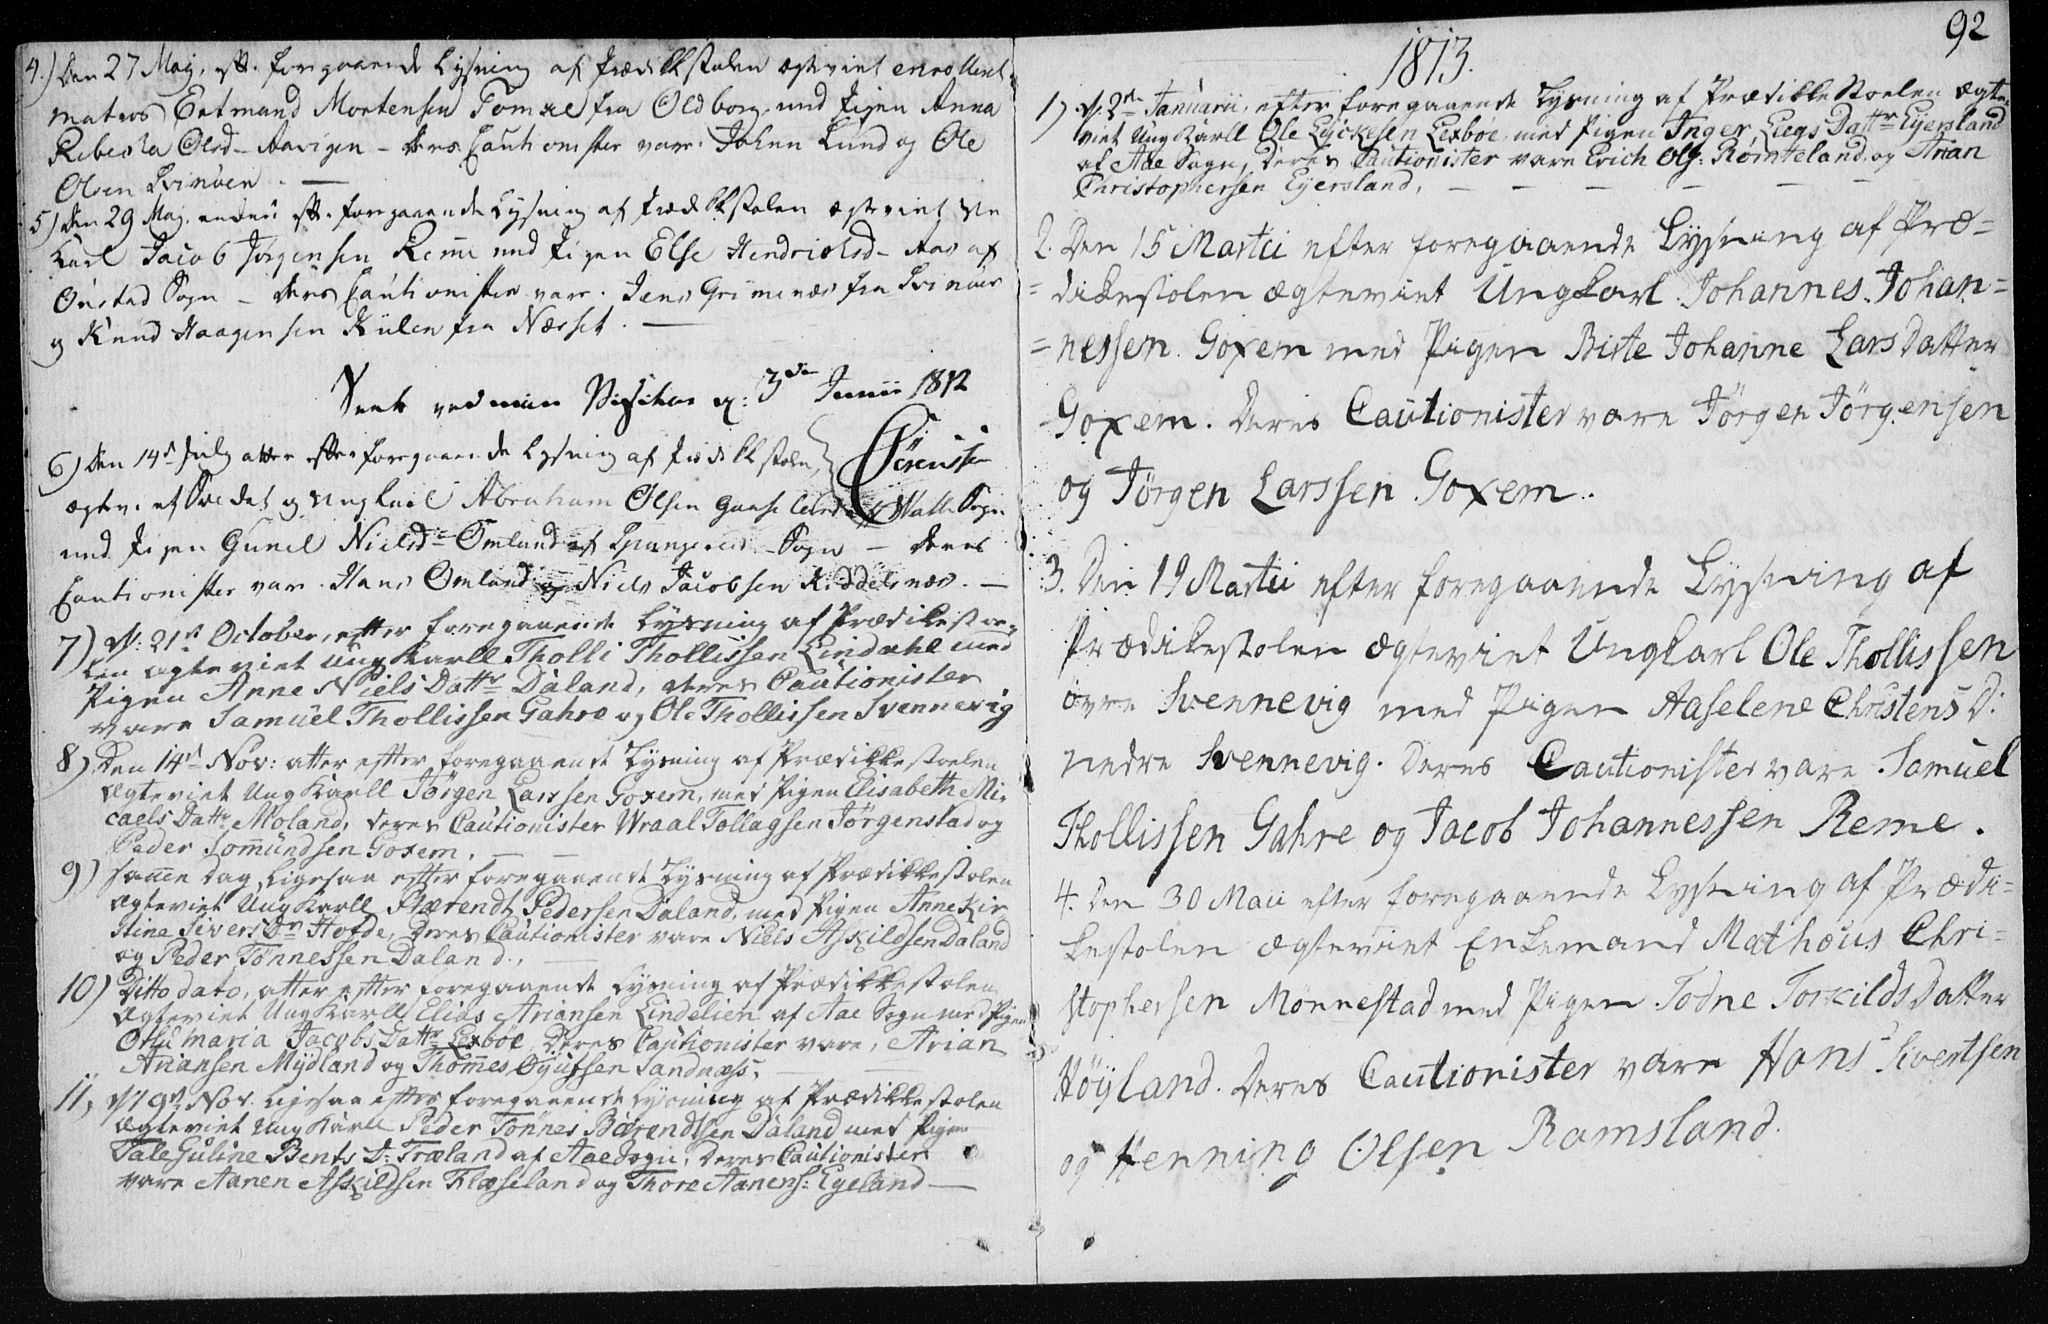 4.) Den 27 Maij, eft. foregaaende Lysning af Prædikkstolen egteviet enrollert
matros Ertmand Mortensen Tomxe fra Oldborg med Pigen Anna
Rebecka Olsd- Aavigen - deres Cautionister vare: Johan Lund og Ole
Olsen Svinöen. —
5) Den 29 Maij. eft. foregaaende Lysning af Prædikkstolen egteviet
Karl Jacob Jörgensen Reme med Pigen Else Hendrichsd- Aas af
Oustad Sogn - deres Cautionister vare. Jens Grimenæs fra Svinöer
og Knud Haagensen Kulien fra Næsset. —
Seet ved min Visitas d: 3die Junii 1812
Sörenssen
6) Den 14de July atter efter foregaaende Lysning af Prædikkstolen
egtev. og Ungkarl Abraham Olsen Halle Sogn
med Pigen Gunel Nielsd= Omland af Spangereid - Sogn - deres
Cautionister var. Hans Omland og Niels Jacobsen Kiddelsnæs. —
7) d: 21de October, efter foregaaende Lysning af Prædikestoe-
len egteviet Ung Karll Tholli Thollissen Lindahl med
Pigen Anne Niels Dattr Daland, deres Cautionister
vare Samuel Thollissen Gahre og Ole Thollissen Svennevig
8) Den 14de Nov: atter efter foregaaende Lysning af Prædikkestoelen
Egteviet Ung Karll Jörgen Larssen Goxem, med Pigen Elisabeth Mi-
caels Dattr Moland, deres Cautionister Wraal Tollagsen Jörgenstad og
Peder Somundsen Goxem. — —
9) samme Dag Ligesaa efter foregaaende Lysning af Prædikkestolen
Egteviet Ung Karll Bærendt Pedersen Daland, med Pigen Anne Kir-
stine Sivers Dr Hofde, Deres Cautionister vare Niels Askildsen Daland
og Peder Tönnessen Daland., —
10) Ditto dato, atter efter foregaaende Lysning af Prædikkestolen
Egteviet Ung Karll Elias Ariansen Lindelien af Aae Sogn med Pigen
Othu Maria Jacobs Dattr Lexböe, Deres Cautionister vare, Arian
Ariansen Mydland og Thommes Gjutssen Sandnæss; —
11, d 9de Nov. Ligesaa efter foregaaende Lysning af Prædikkestolen
Egteviet Ung Karll Peder Tönnes Bærendtsen Daland med Pigen
Tale Guline Bents D: Træland af Aae Sogn, Deres Cautionister
vare Aanen Askildsen Flæseland og Thore Aanens: Egeland —
92
1813.
1) d. 2den Januarii, efter foregaaende Lysning af Prædikke Stoelen Egte-
viet Ung Karll Ole Lyckesen Lexböe med Pigen Inger Liegs Dattr Eÿersland
af Aae Sogn, Deres Cautionister vare Erich Ols: Römteland, og Arian
Christophersen Eÿersland, — — — — — —
2. Den 15 Martii efter foregaaende Lysning af Præ=
= dikestolen ægteviet Ungkarl Johannes Johan=
= nessen Goxem med Pigen Birte Johanne Lars Datter
Goxem. Deres Cautionister vare Jörgen Jörgensen
og Jörgen Larssen Goxem.
3. Den 19 Martii efter foregaaende Lysning af
Prædikestolen ægteviet Ungkarl Ole Thollissen
övre Svennevig med Pigen Aaselene Christens D:
nedre Svennevig. Deres Cautionister vare Samuel
Thollissen Gahre og Jacob Johannessen Reme.
4. Den 30 Maii efter foregaaende Lysning af Prædi=
kestolen ægteviet Enkemand Mathæus Chri=
stophersen Mönnestad med Pigen Todne Torkilds Datter
Höyland. Deres Cautionister vare Hans Sivertsen
og Henning Olsen Ramsland.